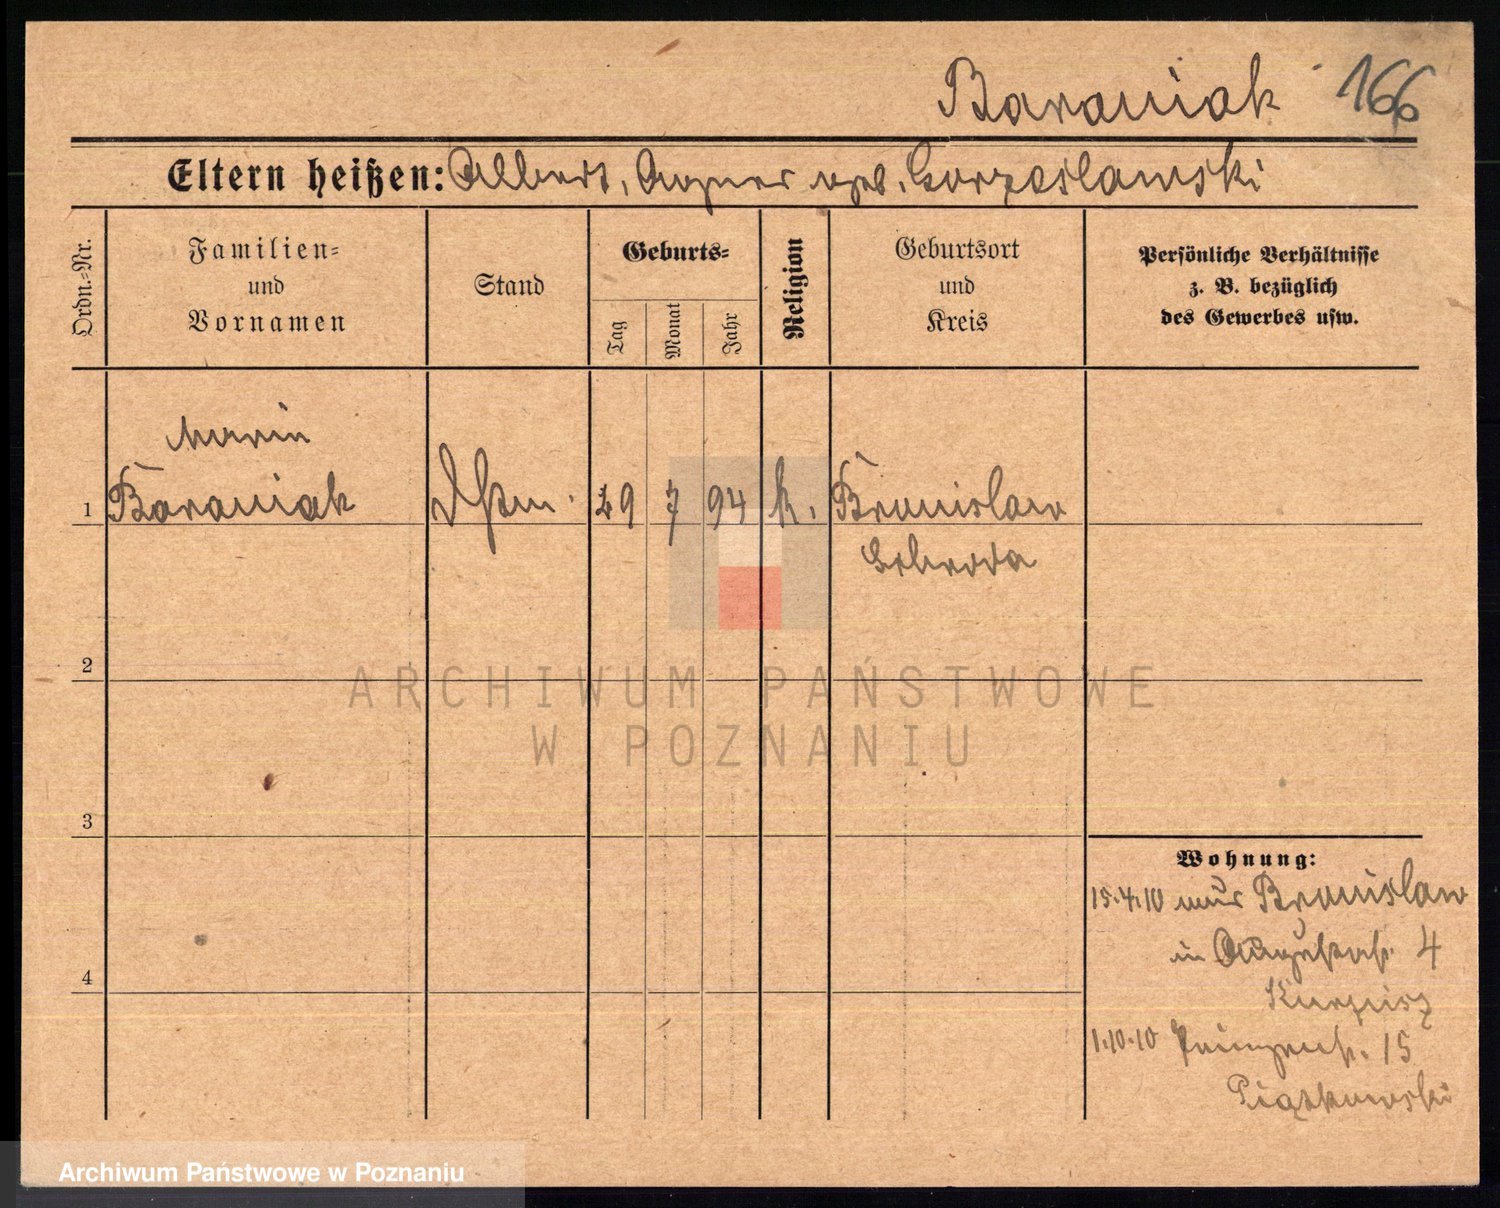 Baraniak 166
Eltern heißen: Albert, Agnes geb. Gorzeslawski
Ordn.-Nr.
Familien-
und
Vornamen
Stand
Geburts-
Tag
Monat
Jahr
Religion
Geburtsort
und
Kreis
Persönliche Verhältnisse
z. B. bezüglich
des Gewerbes usw.
Maria
1 Baraniak 29 7 94 k. Bronislaw
Schroda
2
ARCHIWUM PAŃSTWOWE
W POZNANIU
3
4
Wohnung:
15.4.10 aus Bronislaw
in Augustastr. 4
Kurpisz
1.10.10 Prinzenstr. 15
Piątkowski
Archiwum Państwowe w Poznaniu